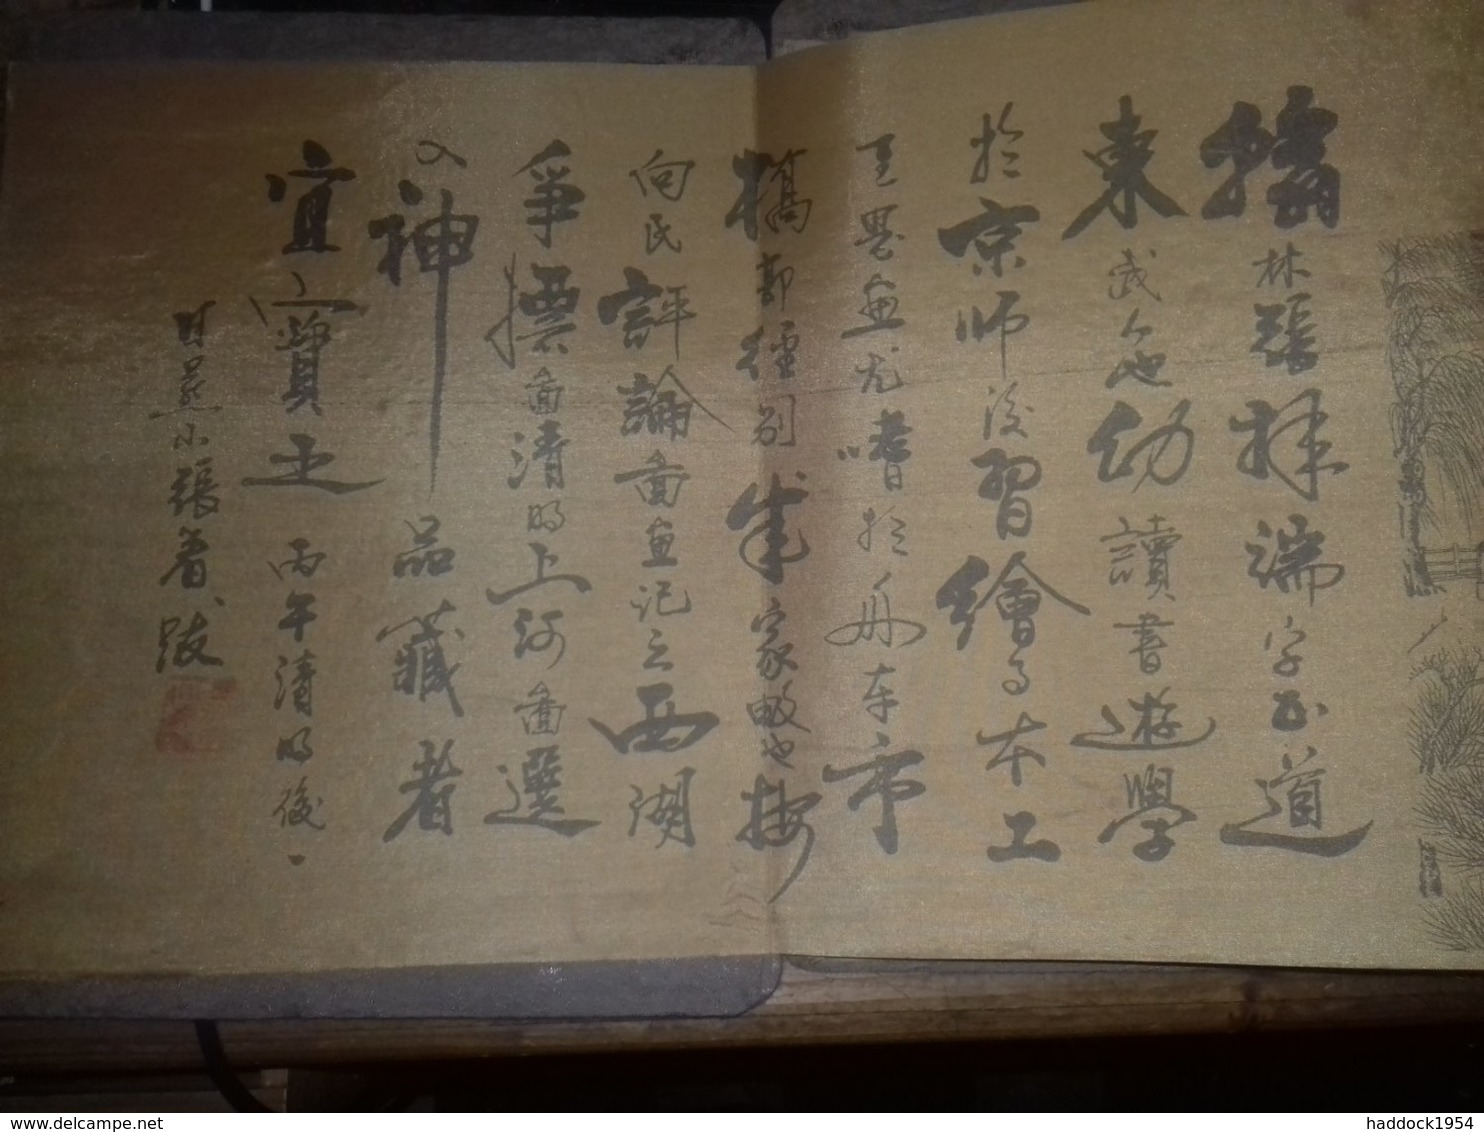 翰林張擇端字正道
東武人也幼讀書遊學
於京師後習繪事本工
其界畫尤嗜於舟車市
橋郭徑別成家數也按
向氏評論圖畫記云西湖
爭標圖清明上河圖選
入神品藏者
宜寶之 丙午清明後一
日燕山張著跋
© delcampe.net
haddock1954